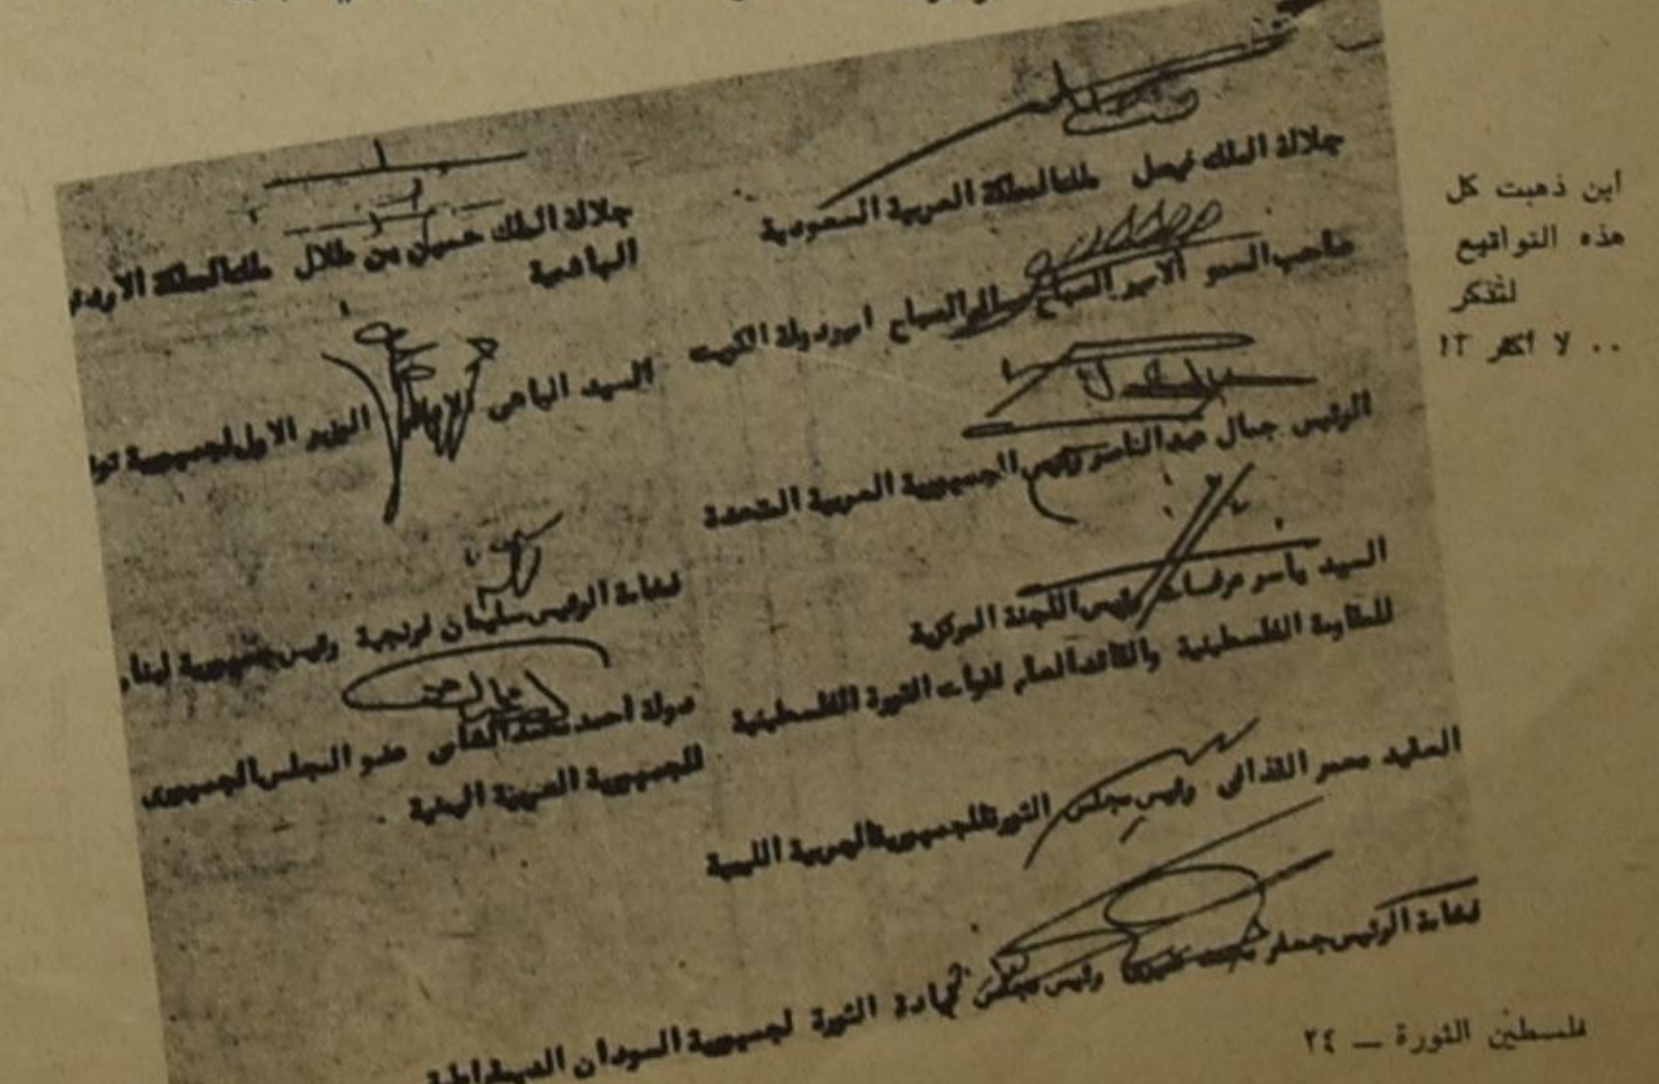 جلالة الملك فيصل ملك المملكة العربية السعودية
صاحب السمو الامير الصباح السالم الصباح امير دولة الكويت
الرئيس جمال عبد الناصر رئيس الجمهورية العربية المتحدة
السيد ياسر عرفات رئيس اللجنة المركزية
للمقاومة الفلسطينية والقائد العام لقوات الثورة الفلسطينية
العقيد معمر القذافى رئيس مجلس الثورة للجمهورية العربية الليبية
فخامة الرئيس جعفر رئيس مجلس قيادة الثورة لجمهورية السودان الديمقراطية
جلالة الملك حسين بن طلال ملك المملكة
الهاشمية
السيد الباهى الوزير الاول لجمهورية
فخامة الرئيس سليمان فرنجية رئيس جمهورية
دولة احمد محمد الشامى عضو المجلس الجمهورى
للجمهورية العربية اليمنية
أين ذهبت كل
هذه التواقيع
لنتذكر
.. لا أكثر !؟
فلسطين الثورة — ٢٤